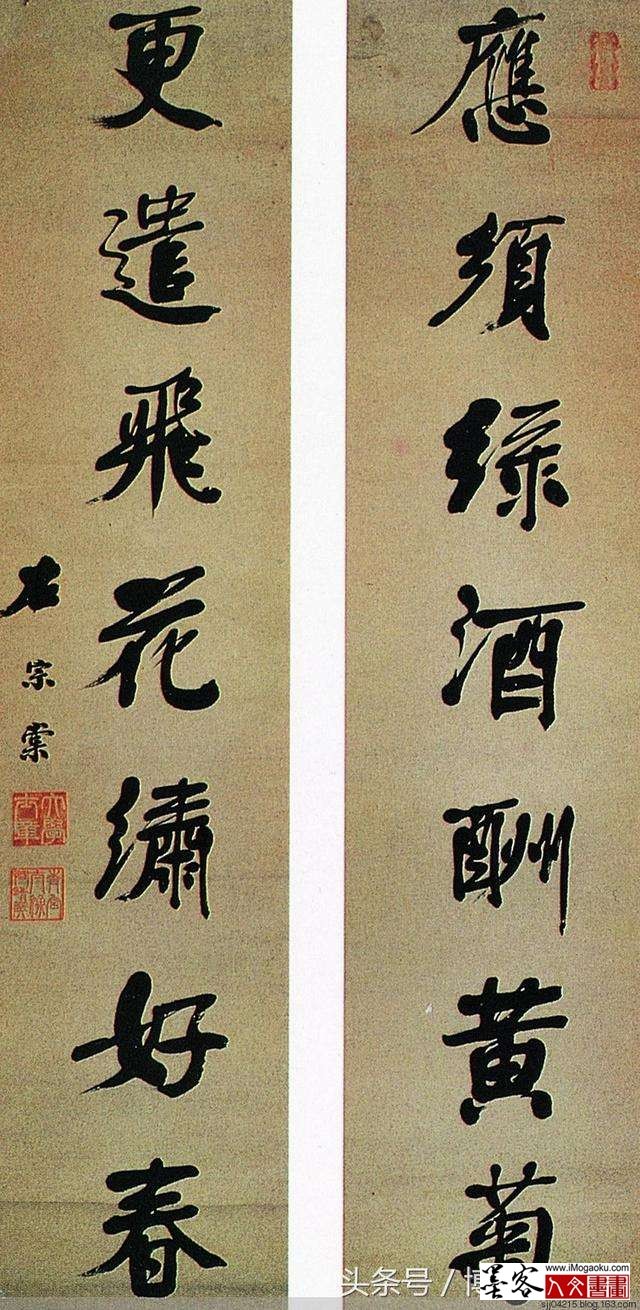 應須綠酒酬黃菊
更遣飛花繡好春
左宗棠
大學士章
头条号 / 博
墨客
www.iMogaoku.com
人文書畫
sjj04215.blog.163.com